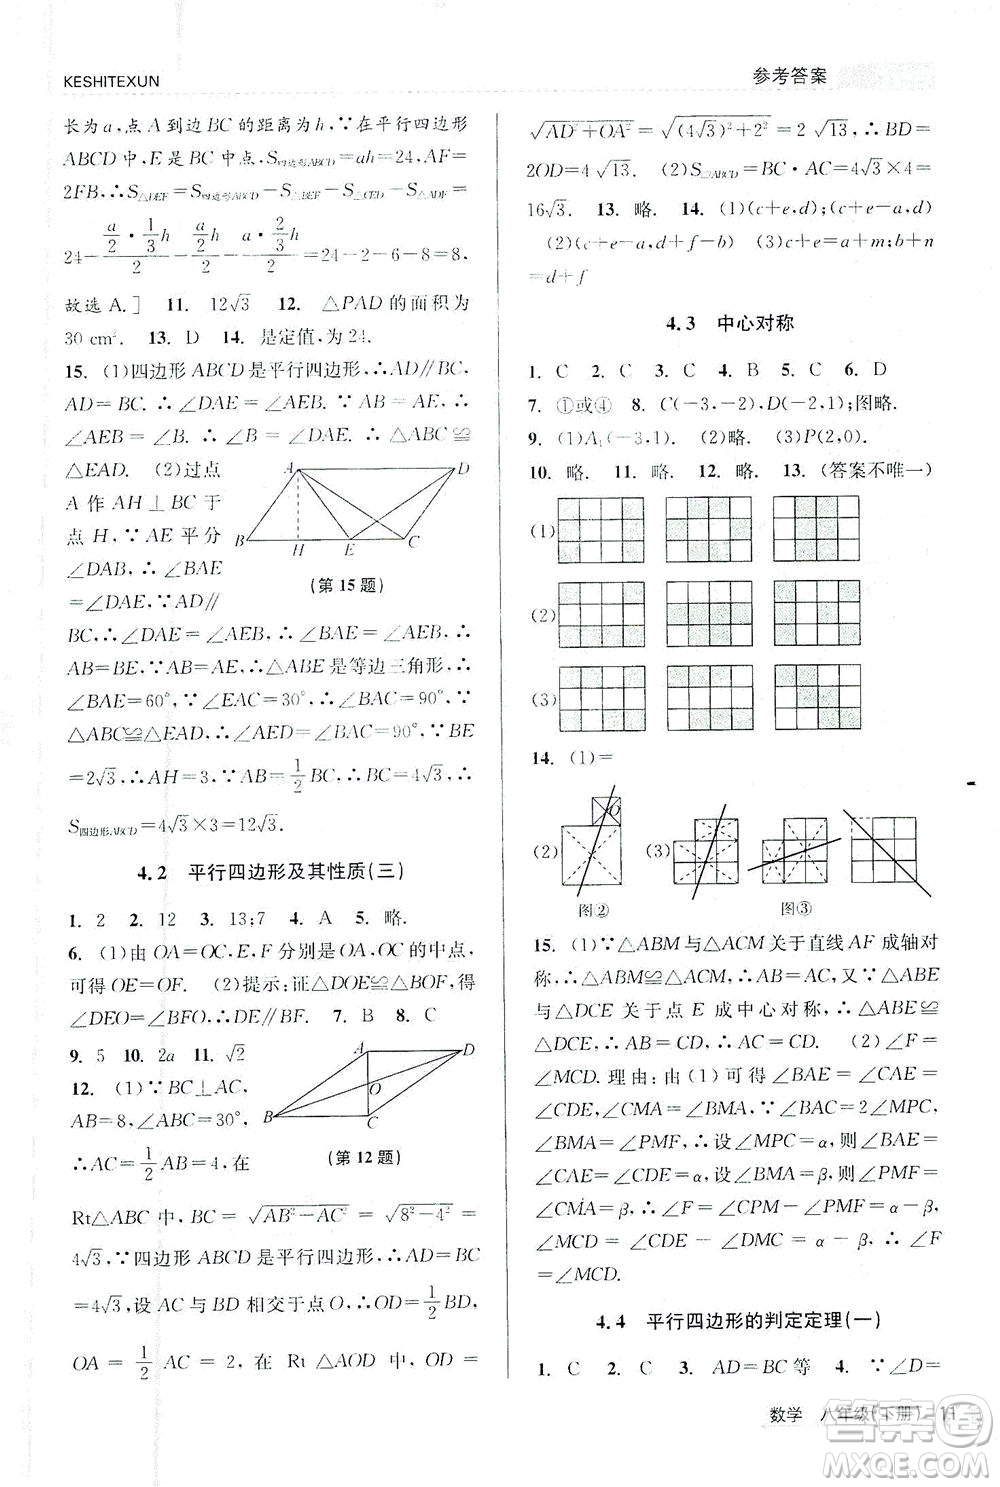 KESHITEXUN
参考答案
长为a,点A到边BC的距离为h,∵在平行四边形
ABCD中,E是BC中点,S四边形ABCD=ah=24,AF=
2FB,∴S△DEF=S四边形ABCD-S△BEF-S△CED-S△ADF=
24-(a/2·1/3h)/2-(a/2·h)/2-(a·2/3h)/2=24-2-6-8=8,
故选A.] 11. 12√3 12. △PAD的面积为
30 cm². 13. D 14. 是定值,为24.
15. (1)四边形ABCD是平行四边形,∴AD∥BC,
AD=BC. ∴∠DAE=∠AEB. ∵AB=AE,∴
∠AEB=∠B. ∴∠B=∠DAE. ∴△ABC≌
△EAD. (2)过点
A作AH⊥BC于
点H,∵AE平分
∠DAB,∴∠BAE
=∠DAE,∵AD∥
A
D
B
H
E
C
(第15题)
BC,∴∠DAE=∠AEB,∴∠BAE=∠AEB,∴
AB=BE,∵AB=AE,∴△ABE是等边三角形,∴
∠BAE=60°,∵∠EAC=30°,∴∠BAC=90°,∵
△ABC≌△EAD,∴∠AED=∠BAC=90°,∵BE
=2√3,∴AH=3,∵BE=1/2BC,∴BC=4√3,∴
S四边形ABCD=4√3×3=12√3.
4.2 平行四边形及其性质(三)
1. 2 2. 12 3. 13:7 4. A 5. 略.
6. (1)由OA=OC,E,F分别是OA,OC的中点,
可得OE=OF. (2)提示:证△DOE≌△BOF,得
∠DEO=∠BFO,∴DE∥BF. 7. B 8. C
9. 5 10. 2a 11. √2
12. (1)∵BC⊥AC,
AB=8,∠ABC=30°,
∴AC=1/2AB=4,在
A
D
O
B
C
(第12题)
Rt△ABC中,BC=√(AB²-AC²)=√(8²-4²)=
4√3,∵四边形ABCD是平行四边形,∴AD=BC
=4√3,设AC与BD相交于点O,∴OD=1/2BD,
OA=1/2AC=2,在Rt△AOD中,OD=
√(AD²+OA²)=√((4√3)²+2²)=2√13,∴BD=
2OD=4√13. (2)S□ABCD=BC·AC=4√3×4=
16√3. 13. 略. 14. (1)(c+e,d);(c+e-a,d)
(2)(c+e-a,d) (3)e+c=a+m;b+n
=d+f
4.3 中心对称
1. C 2. C 3. C 4. B 5. C 6. D
7. ①或④ 8. C(-3,-2),D(-2,1);图略.
9. (1)A₁(-3,1). (2)略. (3)P(2,0).
10. 略. 11. 略. 12. 略. 13. (答案不唯一)
(1)
(2)
(3)
14. (1)=
(2)
O
图②
(3)
图③
15. (1)∵△ABM与△ACM关于直线AF成轴对
称,∴△ABM≌△ACM,∴AB=AC,又∵△ABE
与△DCE关于点E成中心对称,∴△ABE≌
△DCE,∴AB=CD,∴AC=CD. (2)∠F=
∠MCD. 理由:由(1)可得∠BAE=∠CAE=
∠CDE,∠CMA=∠BMA,∵∠BAC=2∠MPC,
∠BMA=∠PMF,∴设∠MPC=α,则∠BAE=
∠CAE=∠CDE=α,设∠BMA=β,则∠PMF=
∠CMA=β,∴∠F=∠CPM-∠PMF=α-β,
∠MCD=∠CDE-∠DMC=α-β,∴∠F
=∠MCD.
4.4 平行四边形的判定定理(一)
1. C 2. C 3. AD=BC等 4. ∵∠D=
数学 八年级(下册) 11
答案圈
MXQE.COM